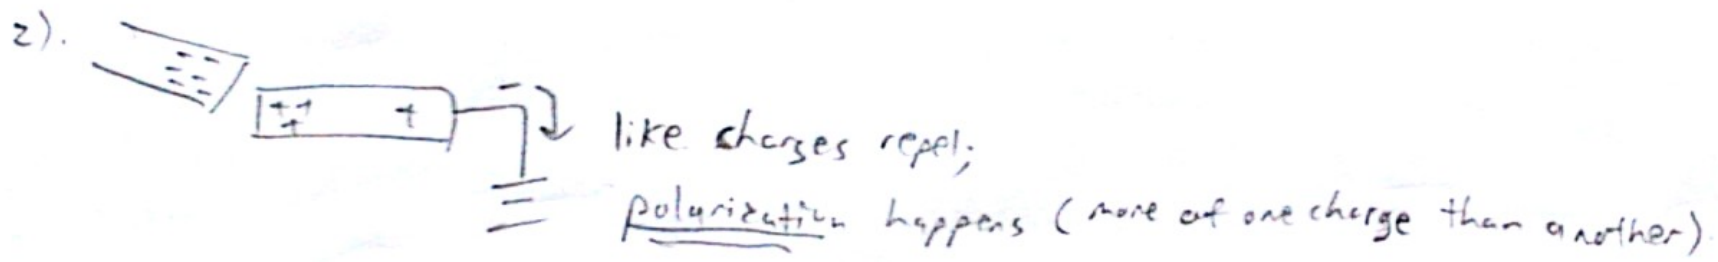 2).
- - - - - - -
+ + + +
-
like charges repel;
polarization happens (more of one charge than another)